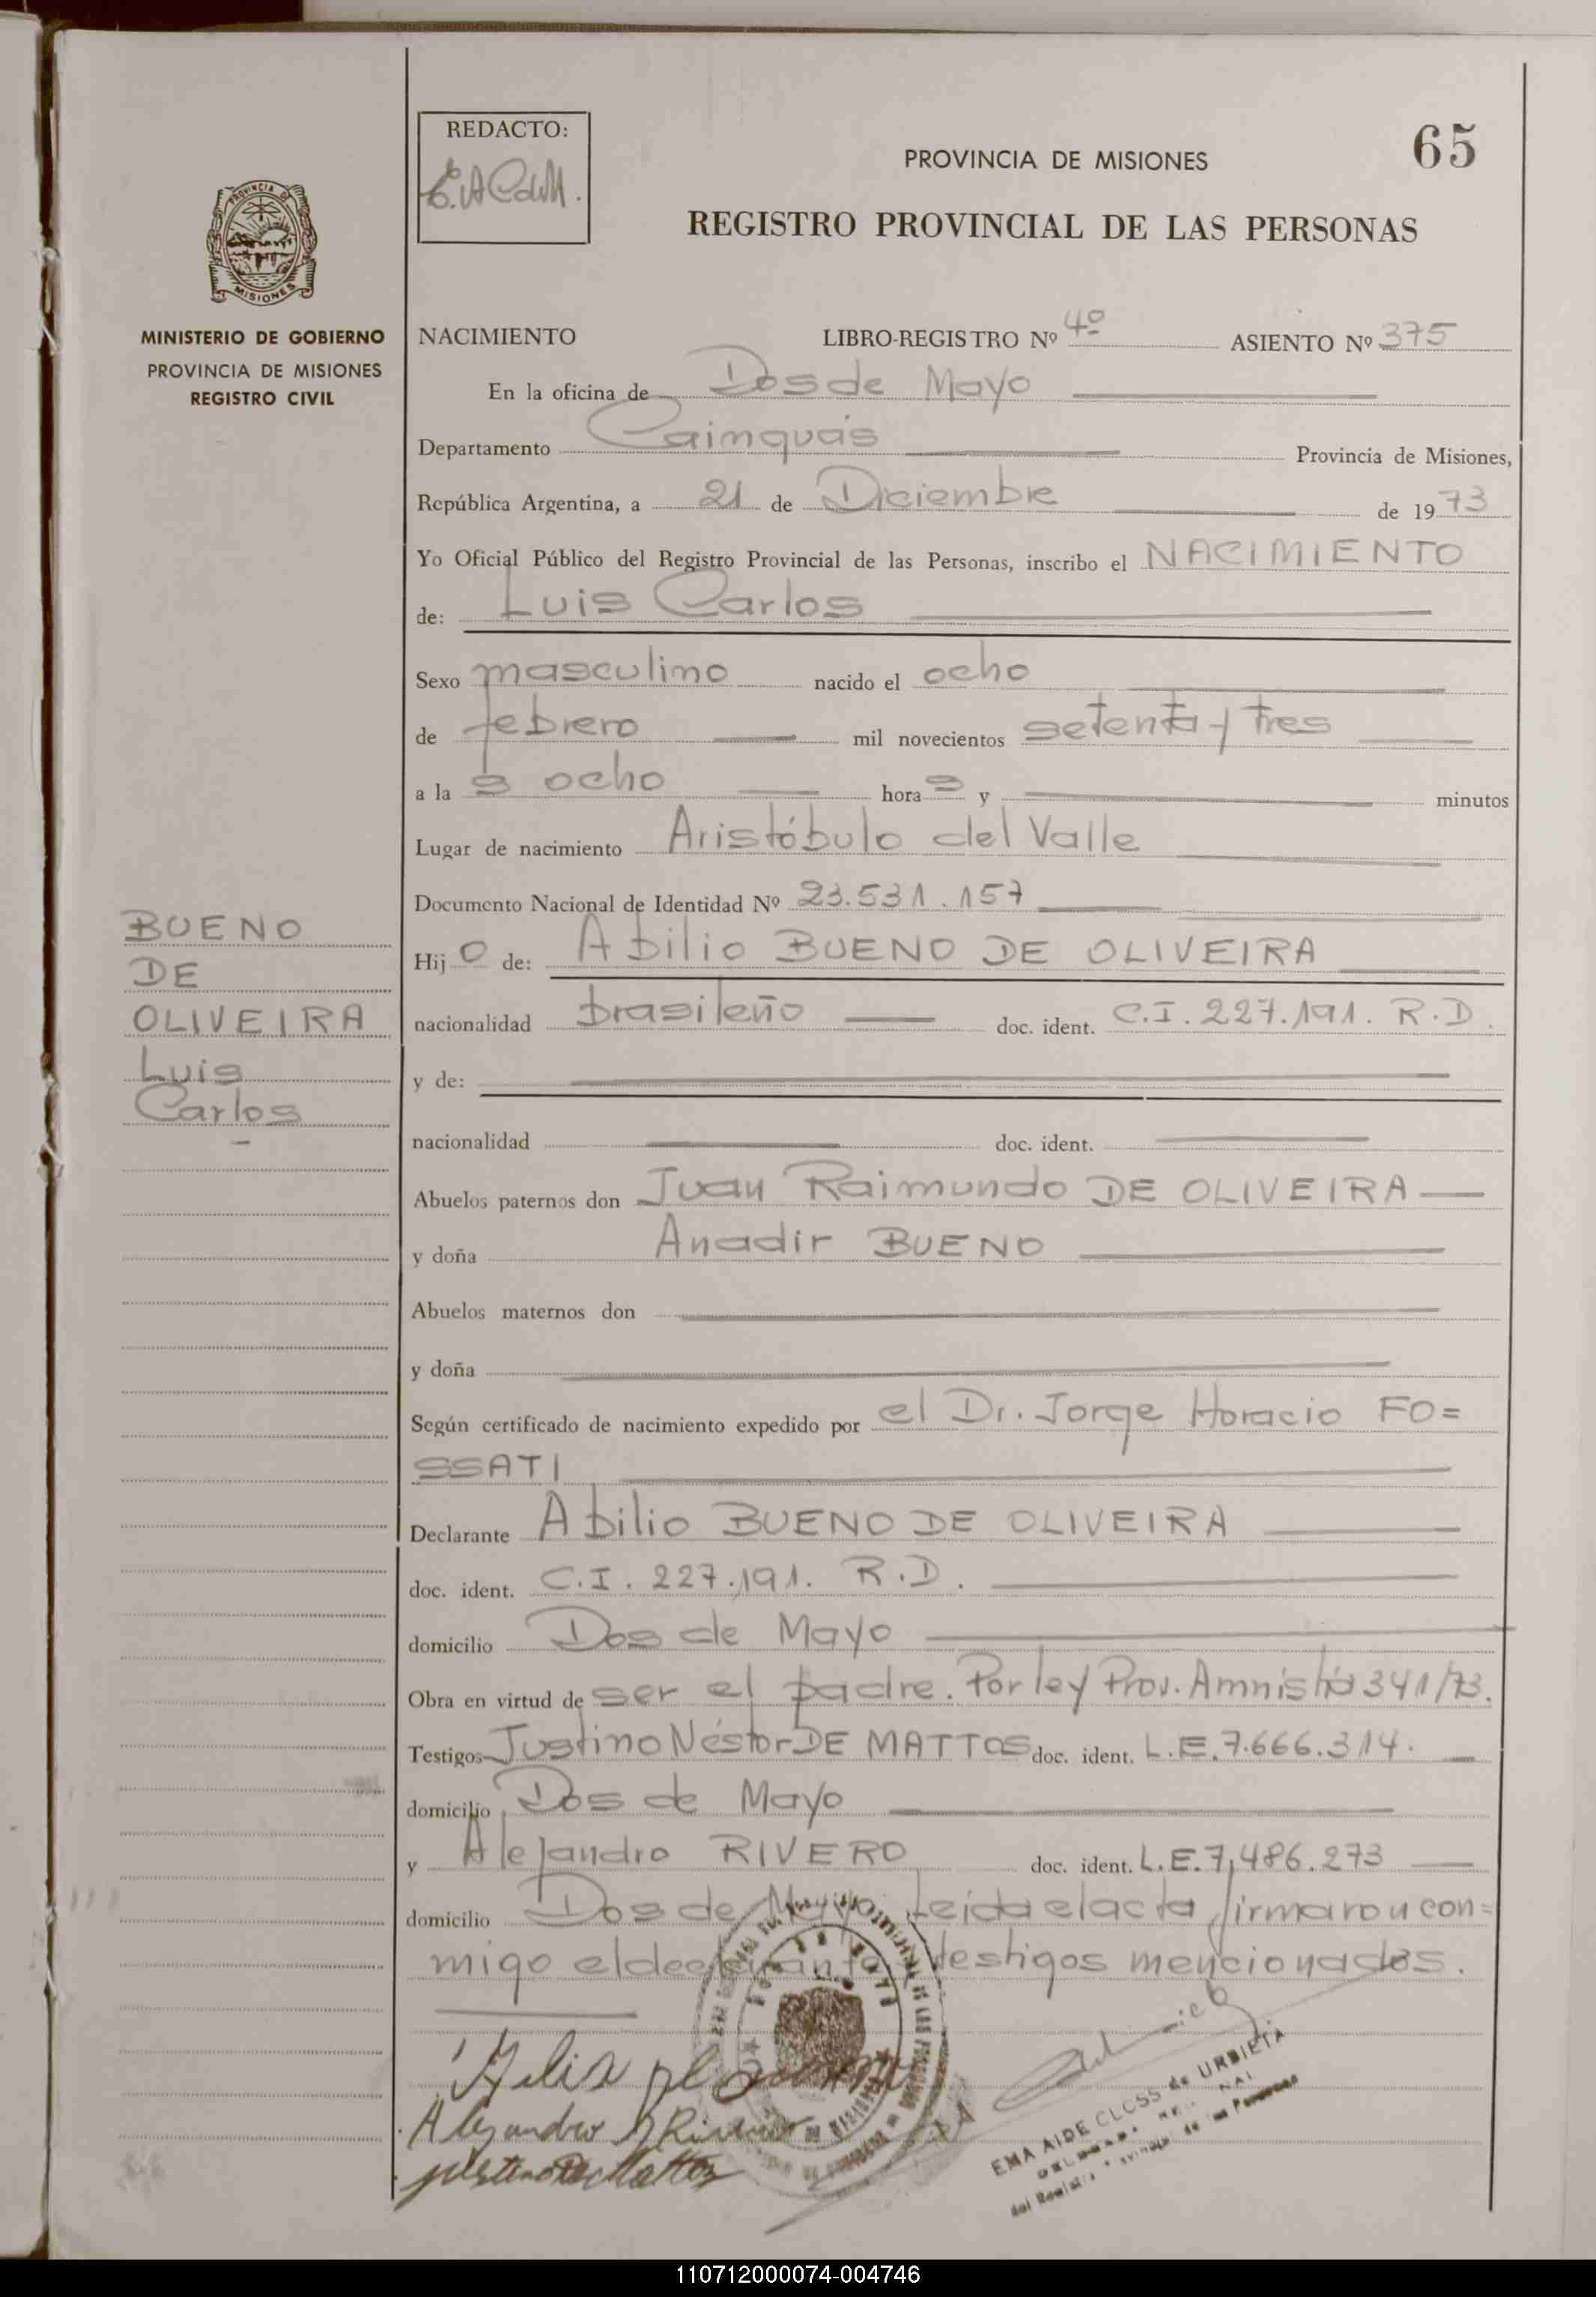 65
REDACTO:
PROVINCIA DE MISIONES
REGISTRO PROVINCIAL DE LAS PERSONAS
PROVINCIA DE
MISIONES
MINISTERIO DE GOBIERNO
PROVINCIA DE MISIONES
REGISTRO CIVIL
NACIMIENTO LIBRO-REGISTRO Nº 4º ASIENTO Nº 375
En la oficina de Dos de Mayo
Departamento Cainguás Provincia de Misiones,
República Argentina, a 21 de Diciembre de 1973
Yo Oficial Público del Registro Provincial de las Personas, inscribo el NACIMIENTO
de: Luis Carlos
Sexo masculino nacido el ocho
de febrero mil novecientos setenta y tres
a la s ocho hora s y minutos
Lugar de nacimiento Aristóbulo del Valle
Documento Nacional de Identidad Nº 23.531.157
BUENO
DE
OLIVEIRA
Luis
Carlos
Hij o de: Abilio BUENO DE OLIVEIRA
nacionalidad brasileño doc. ident. C.I. 227.191. R.D.
y de:
nacionalidad doc. ident.
Abuelos paternos don Juan Raimundo DE OLIVEIRA
y doña Anadir BUENO
Abuelos maternos don
y doña
Según certificado de nacimiento expedido por el Dr. Jorge Horacio FO=
SSATI
Declarante Abilio BUENO DE OLIVEIRA
doc. ident. C.I. 227.191. R.D.
domicilio Dos de Mayo
Obra en virtud de ser el padre. Por ley Prov. Amnistía 341/73.
Testigos Justino Néstor DE MATTOS doc. ident. L.E. 7.666.314.
domicilio Dos de Mayo
y Alejandro RIVERO doc. ident. L.E. 7,486.273
domicilio Dos de Mayo. Leída el acta, firmaron con=
migo el declarante y testigos mencionados.
Alejandro Rivero
Justino De Mattos
EMA AIDE CLOSS de URBIETA
110712000074-004746